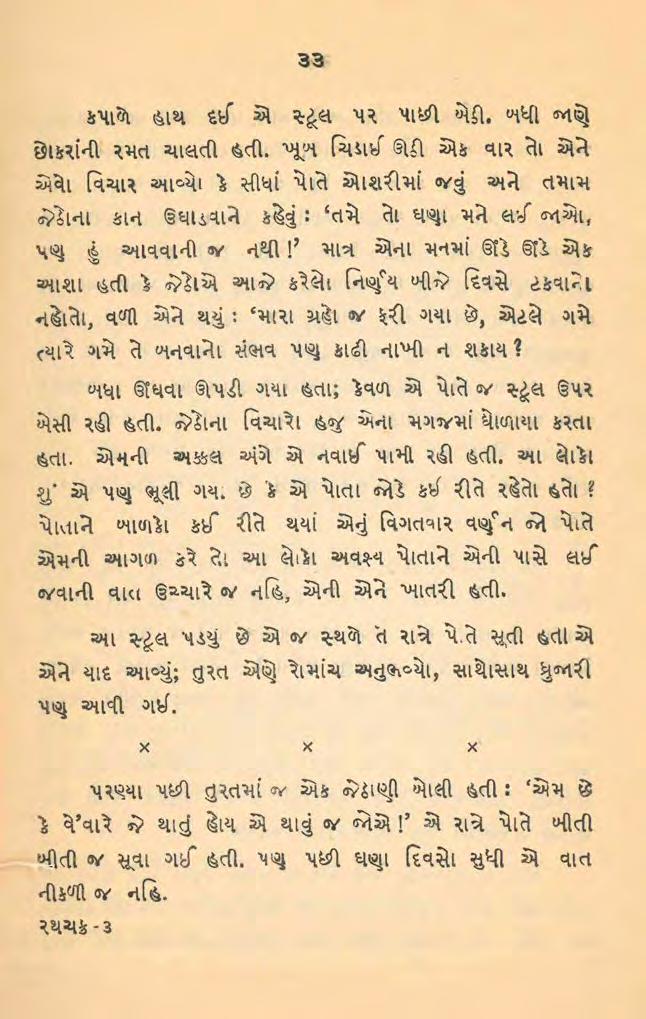 ૩૩
કપાળે હાથ દઈ એ સ્ટૂલ પર પાછી બેઠી. બધી જાણે
છોકરાંની રમત ચાલતી હતી. ખૂબ ચિડાઈ ઊઠી એક વાર તો એને
એવો વિચાર આવ્યો કે સીધાં પોતે ઓશરીમાં જવું અને તમામ
જેઠોના કાન ઉઘાડવાને કહેવું : ‘તમે તો ઘણા મને લઈ જાઓ,
પણ હું આવવાની જ નથી !’ માત્ર એના મનમાં ઊંડે ઊંડે એક
આશા હતી કે જેઠોએ આજે કરેલો નિર્ણય બીજે દિવસે ટકવાનો
નહોતો, વળી એને થયું : ‘મારા ગ્રહો જ ફરી ગયા છે, એટલે ગમે
ત્યારે ગમે તે બનવાનો સંભવ પણ કાઢી નાખી ન શકાય ?
બધા ઊંઘવા ઊપડી ગયા હતા; કેવળ એ પોતે જ સ્ટૂલ ઉપર
બેસી રહી હતી. જેઠોના વિચારો હજુ એના મગજમાં ઘોળાયા કરતા
હતા. એમની અક્કલ અંગે એ નવાઈ પામી રહી હતી. આ લોકો
શું એ પણ ભૂલી ગય. છે કે એ પોતા જોડે કઈ રીતે રહેતો હતો ?
પોતાને બાળકો કઈ રીતે થયાં એનું વિગતવાર વર્ણન જો પોતે
એમની આગળ કરે તો આ લોકો અવશ્ય પોતાને એની પાસે લઈ
જવાની વાત ઉચ્ચારે જ નહિ, એની એને ખાતરી હતી.
આ સ્ટૂલ પડયું છે એ જ સ્થળે તે રાત્રે પે.તે સૂતી હતી એ
એને યાદ આવ્યું; તુરત એણે રોમાંચ અનુભવ્યો, સાથોસાથ ધ્રુજારી
પણ આવી ગઈ.
× × ×
પરણ્યા પછી તુરતમાં જ એક જેઠાણી બોલી હતી : ‘એમ છે
કે વે’વારે જે થાતું હોય એ થાવું જ જોએ !’ એ રાત્રે પોતે બીતી
બીતી જ સૂવા ગઈ હતી. પણ પછી ઘણા દિવસો સુધી એ વાત
નીકળી જ નહિ.
રથચક્ર - ૩